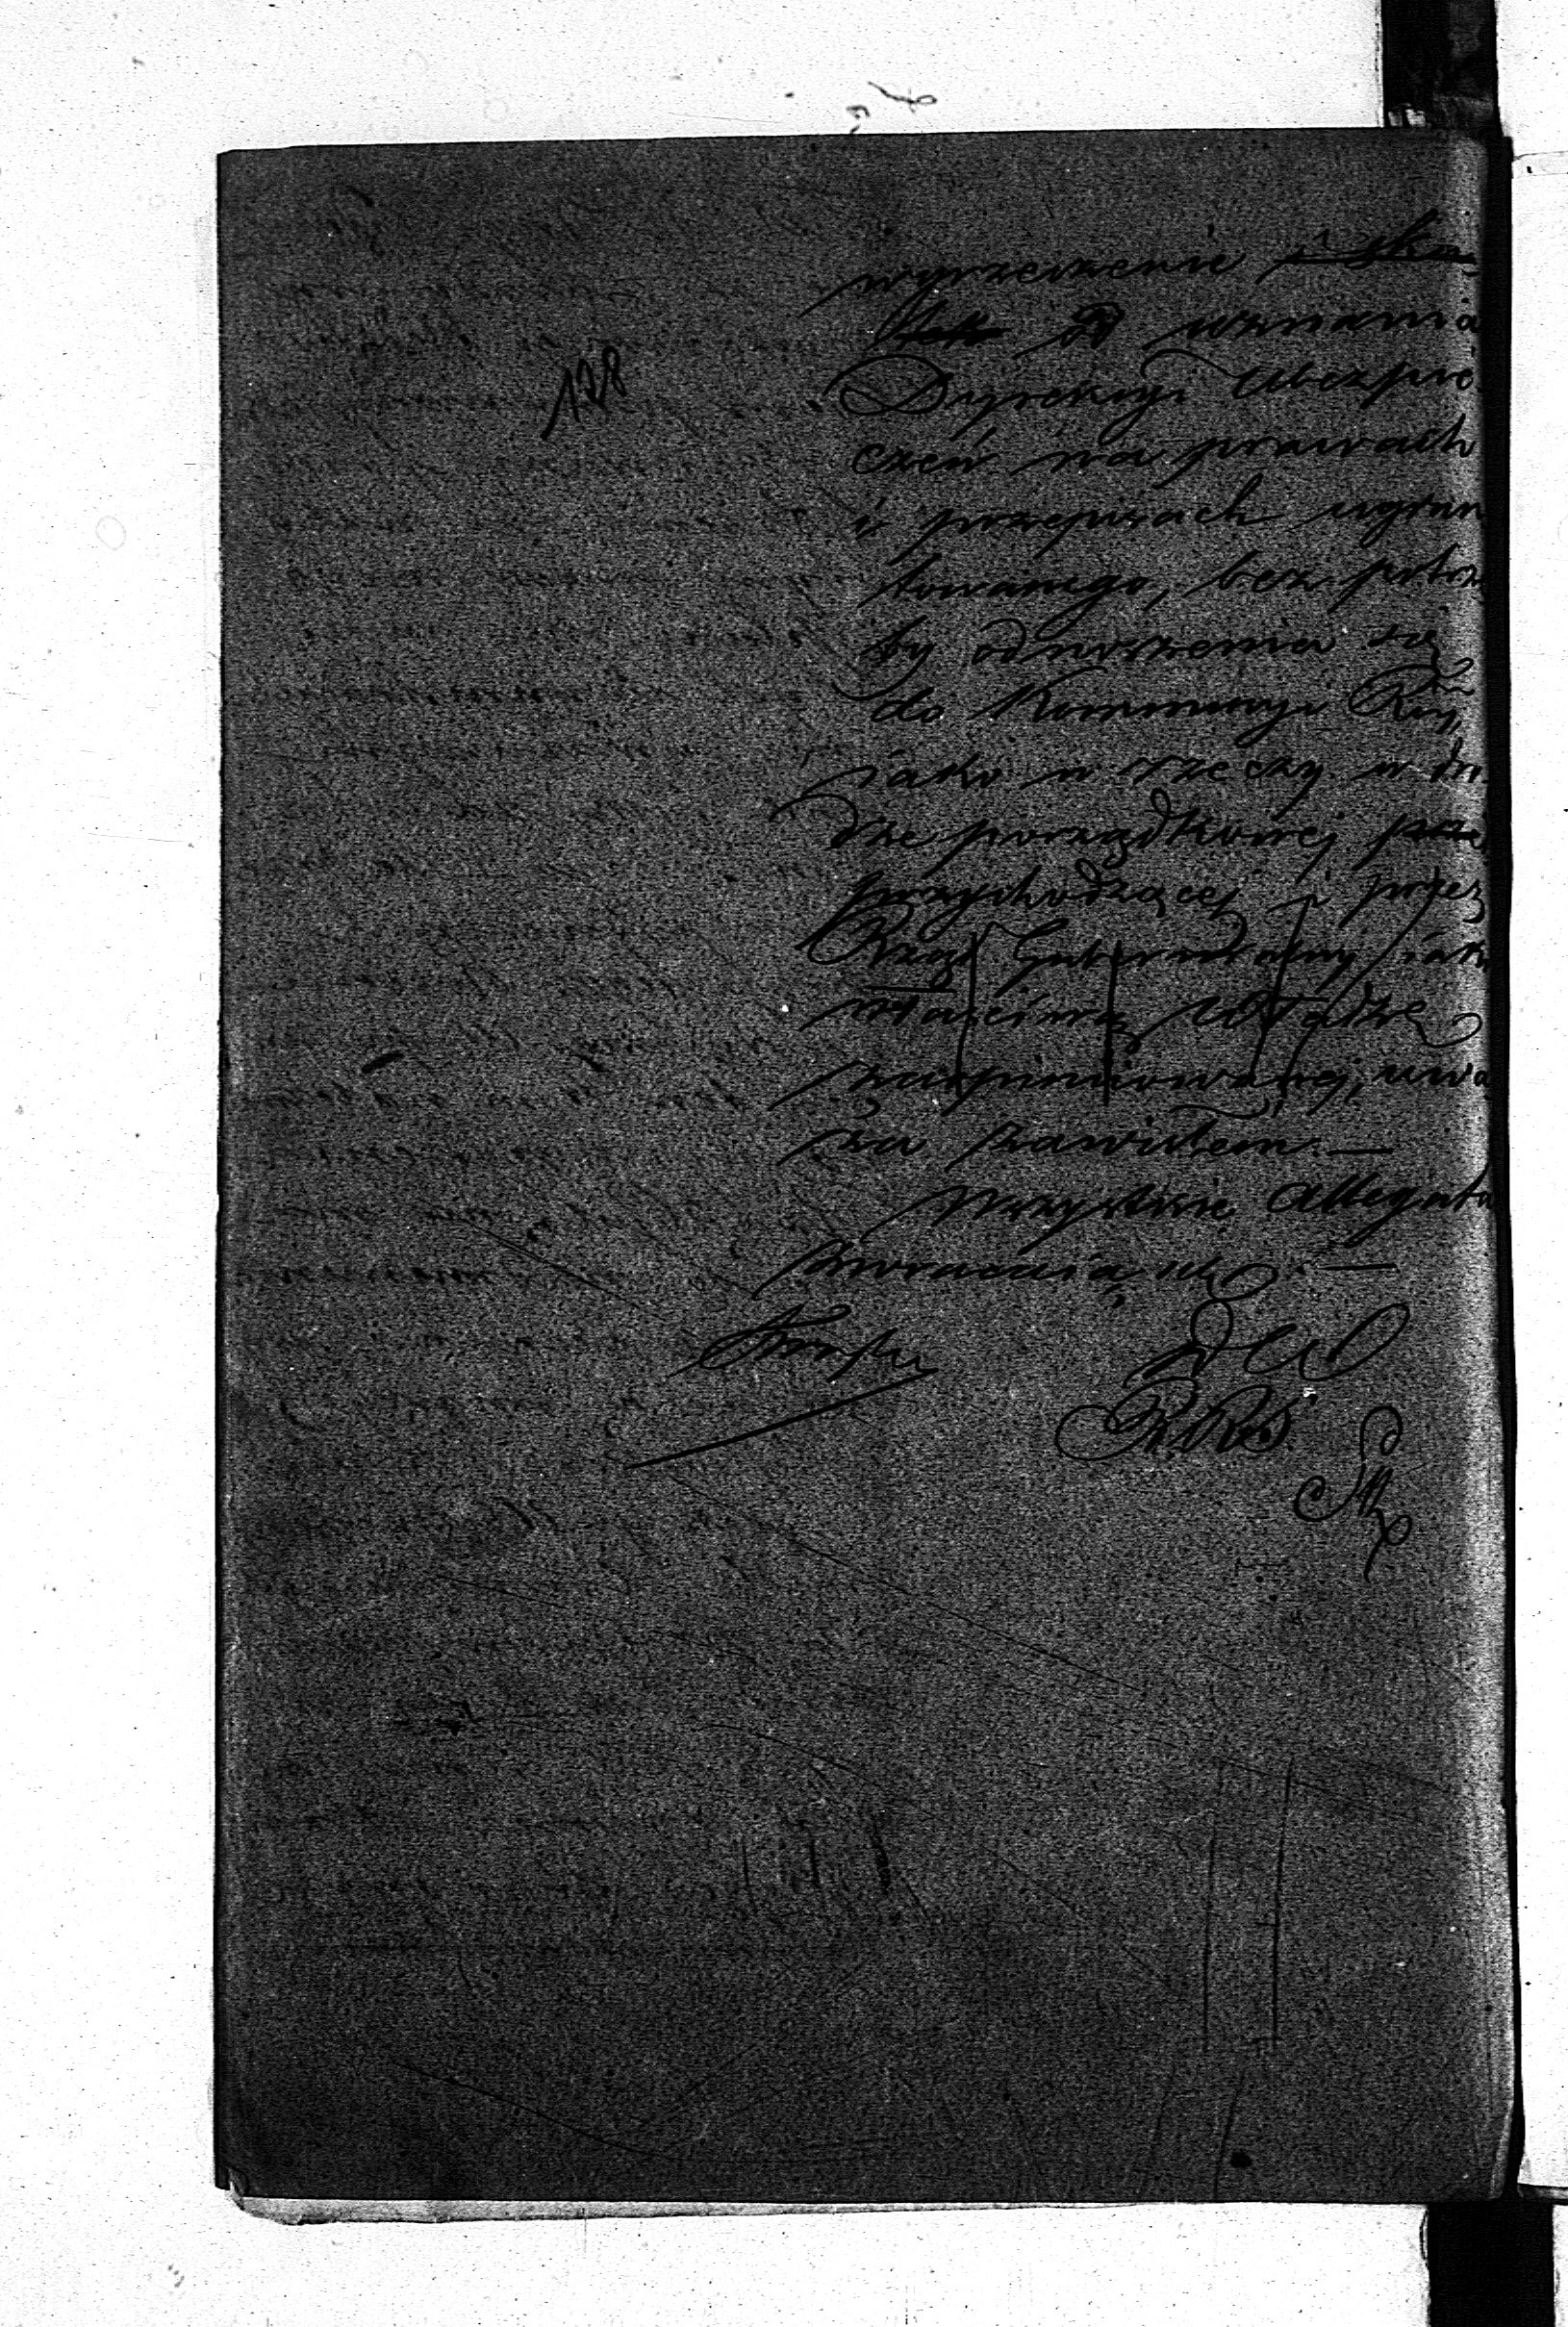 128
wyrzeczenie
od uznania
Dyrekcyi Ubezpie-
czeń na prawach
i przepisach ugrun
towanego, bez potrze
by odnoszenia się
do Kommissyi Rząd:
iako w rzeczy w dro
dze porządkowej
przychodzącej i przez
Rząd Gubernialny iako
właściwą władzę
zaopiniowanej, uwa
ża zawisłem. —
Wszystkie allegata
zwracaią się. —